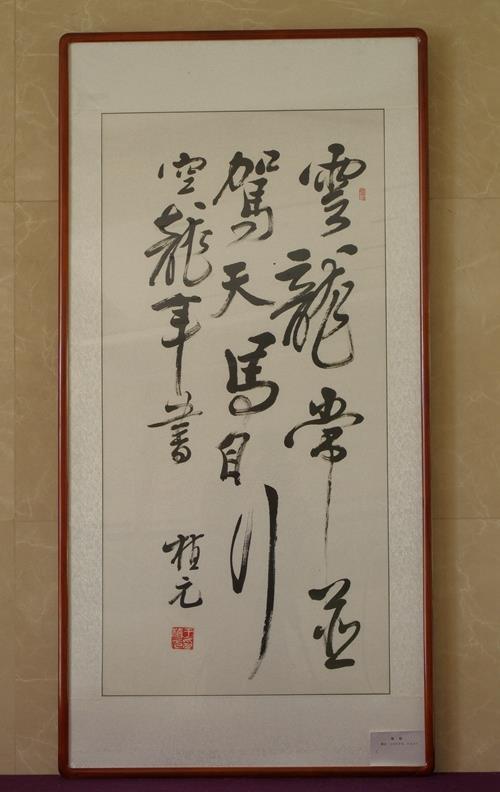 雲龍常並
駕天馬自行
空龍年書
植元